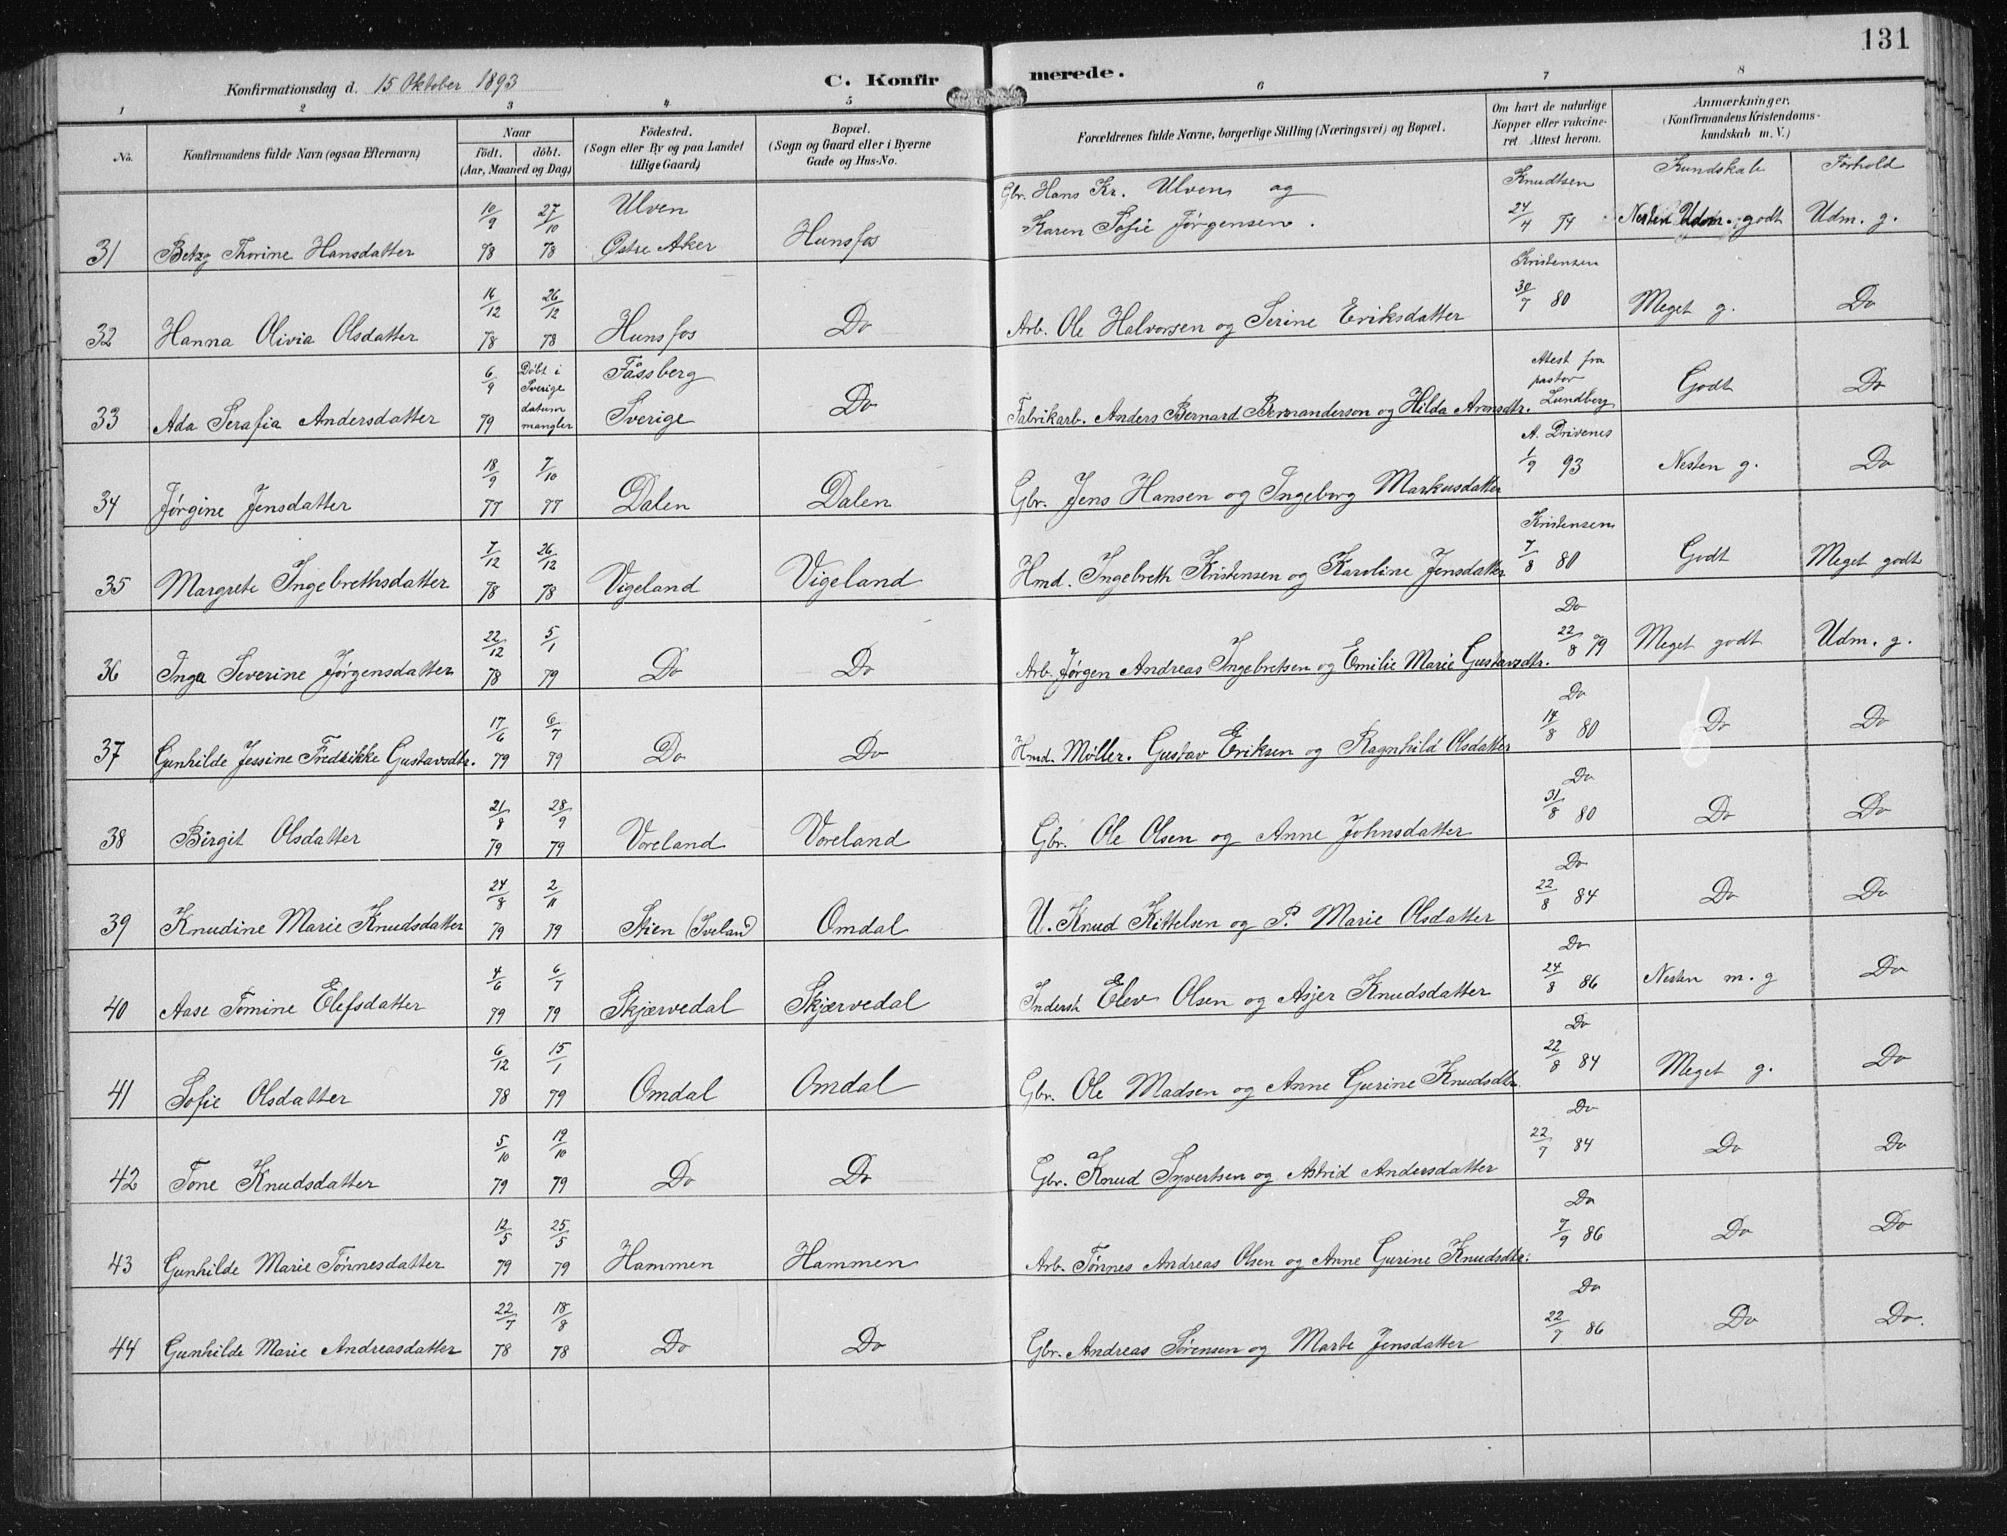 131
Konfirmationsdag d. 15 Oktober 1893 C. Konfirmerede.
1 2 3 4 5 6 7 8
No. Konfirmandens fulde Navn (ogsaa Efternavn) Naar födt. döbt. (Aar, Maaned og Dag) Födested. (Sogn eller By og paa Landet tillige Gaard) Bopæl. (Sogn og Gaard eller i Byerne Gade og Hus-No. Forældrenes fulde Navne, borgerlige Stilling (Næringsvei) og Bopæl. Om havt de naturlige Kopper eller vakcineret Attest herom. Anmærkninger. (Konfirmandens Kristendomskundskab m. V.)
Kundskab Forhold
31 Betzy Thorine Hansdatter 10/9 78 27/10 78 Ulven Østre Aker Hunsfos Gbr. Hans Kr. Ulven og Karen Sofie Jørgensen. Knudtsen 24/4 74 Nesten Udm. godt Udm. g.
32 Hanna Olivia Olsdatter 16/12 78 26/12 78 Hunsfos Do Arb. Ole Halvorsen og Serine Eriksdatter Kristensen 30/7 80 Meget g. Do
33 Ada Serafia Andersdatter 6/9 79 Döbt i Sverige datum mangler Fåssberg Sverige Do Fabrikarb. Anders Bernard Bernanderson og Hilda Aronsdtr. Attest fra pastor Lundberg Godt Do
34 Jørgine Jensdatter 18/9 77 7/10 77 Dalen Dalen Gbr. Jens Hansen og Ingeborg Markusdatter A. Drivenes 1/9 93 Nesten g. Do
35 Margrete Ingebrethsdatter 7/12 78 26/12 78 Vigeland Vigeland Hmd. Ingebreth Kristensen og Karoline Jensdatter Kristensen 7/8 80 Godt Meget godt
36 Inga Severine Jørgensdatter 22/12 78 5/1 79 Do Do Arb. Jørgen Andreas Ingebretsen og Emilie Marie Gustavsdtr. Do 22/8 79 Meget godt Udm. g.
37 Gunhilde Jessine Fredrikke Gustavsdtr. 17/6 79 6/7 79 Do Do Hmd. Møller. Gustav Eriksen og Ragnhild Olsdatter Do 14/8 80 Do Do
38 Birgit Olsdatter 21/8 79 28/9 79 Voreland Voreland Gbr. Ole Olsen og Anne Johnsdatter Do 31/8 80 Do Do
39 Knudine Marie Knudsdatter 24/8 79 2/11 79 Stien (Iveland) Omdal U. Knud Kittelsen og P. Marie Olsdatter Do 22/8 84 Do Do
40 Aase Tomine Elefsdatter 4/6 79 6/7 79 Skjærvedal Skjærvedal Inderst Elev Olsen og Asjer Knudsdatter Do 24/8 86 Nesten m. g Do
41 Sofie Olsdatter 6/12 78 15/1 79 Omdal Omdal Gbr. Ole Madsen og Anne Gurine Knudsdtr. Do 22/8 84 Meget g. Do
42 Tone Knudsdatter 5/10 79 19/10 79 Do Do Gbr. Knud Syvertsen og Astrid Andersdatter Do 22/7 84 Do Do
43 Gunhilde Marie Tønnesdatter 12/5 79 25/5 79 Hammen Hammen Arb. Tønnes Andreas Olsen og Anne Gurine Knudsdtr. Do 7/9 86 Do Do
44 Gunhilde Marie Andreasdatter 22/7 78 18/8 78 Do Do Gbr. Andreas Sørensen og Marte Jensdatter Do 22/7 86 Do Do.